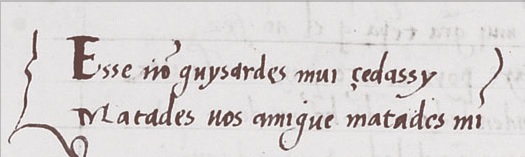 Esse nõ guysardes mui çedassy
Matades uos amigue matades mi